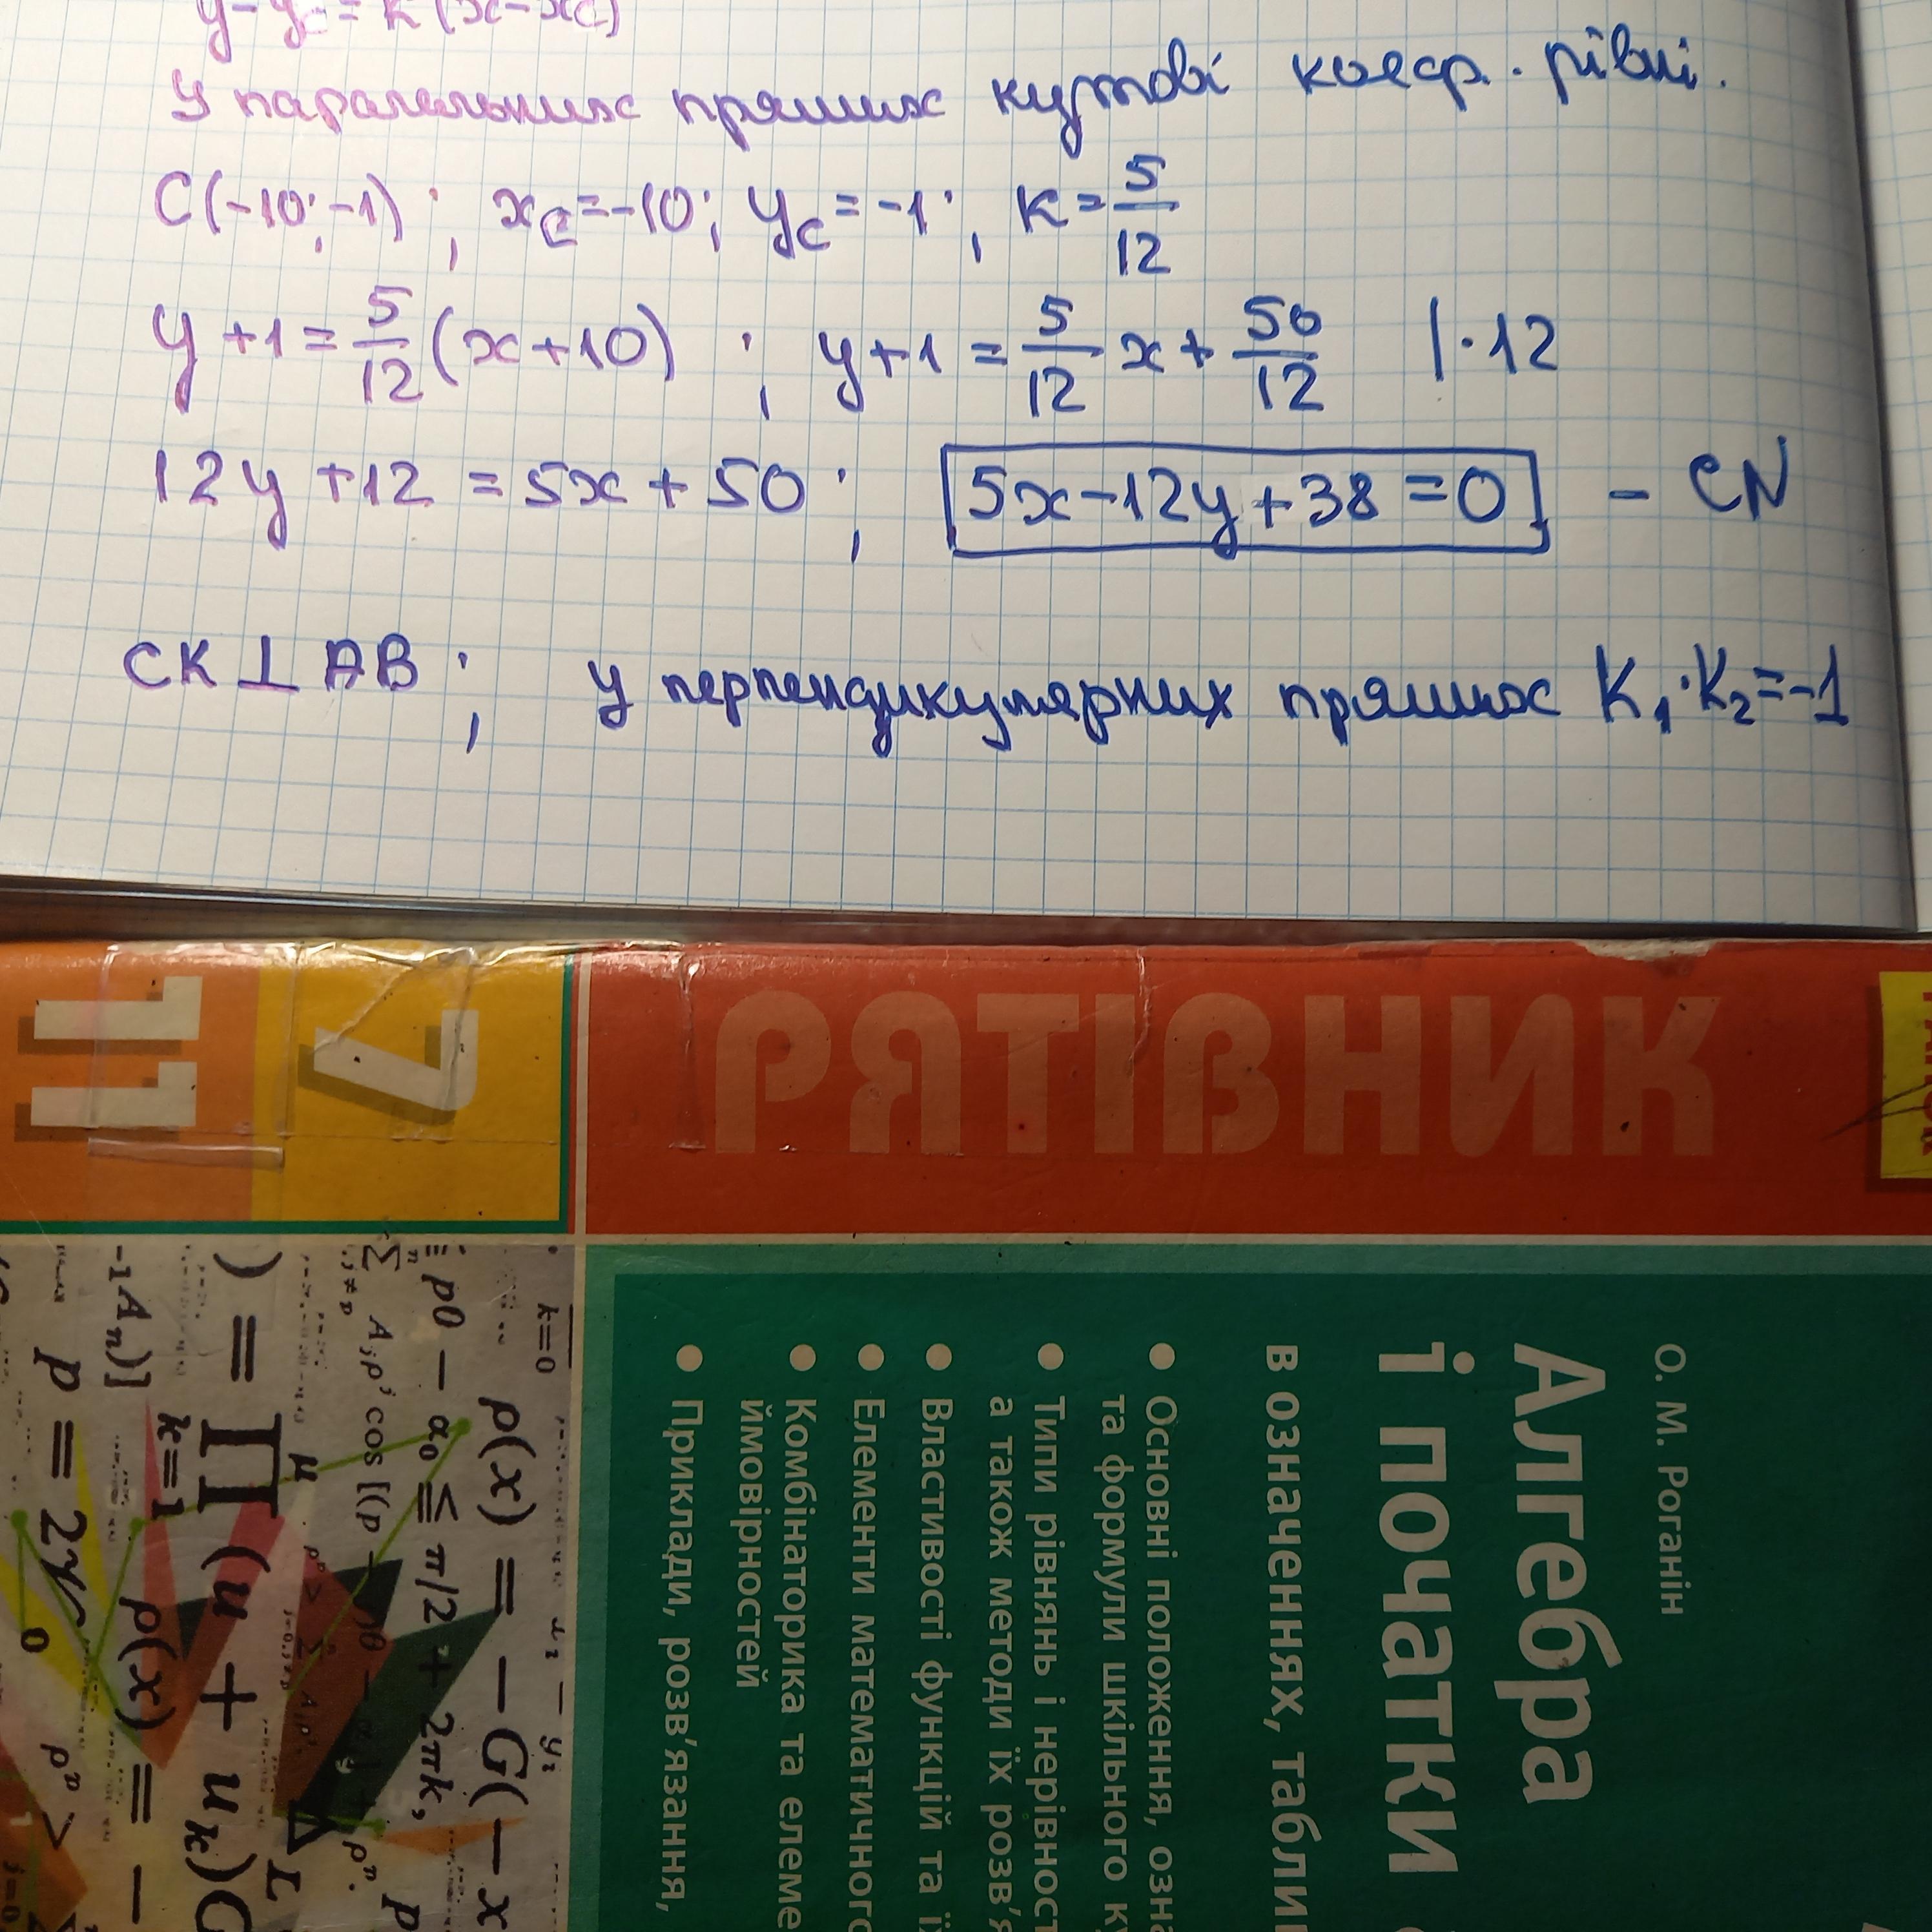 y - yc = k (x - xc)
У паралельних прямих кутові коеф. рівні.
C(-10; -1) ; xc = -10; yc = -1 ; k = 5/12
y + 1 = 5/12 (x + 10) ; y + 1 = 5/12 x + 50/12 | · 12
12y + 12 = 5x + 50 ; 5x - 12y + 38 = 0 - CN
CK ⊥ AB ; У перпендикулярних прямих K1 · K2 = -1
7
11
РЯТІВНИК
О. М. Роганін
Алгебра
і початки
в означеннях, табли
● Основні положення, озна
та формули шкільного к
● Типи рівнянь і нерівност
а також методи їх розв'я
● Властивості функцій та ї
● Елементи математичного
● Комбінаторика та елеме
ймовірностей
● Приклади, розв'язання,
k=0
ρ(x) = -G(-x
p0 - α0 ≦ π/2 + 2πk,
) = ∏ (u + uk)G
k=1
-1An)]
p = 2γ
ρ(x) = -